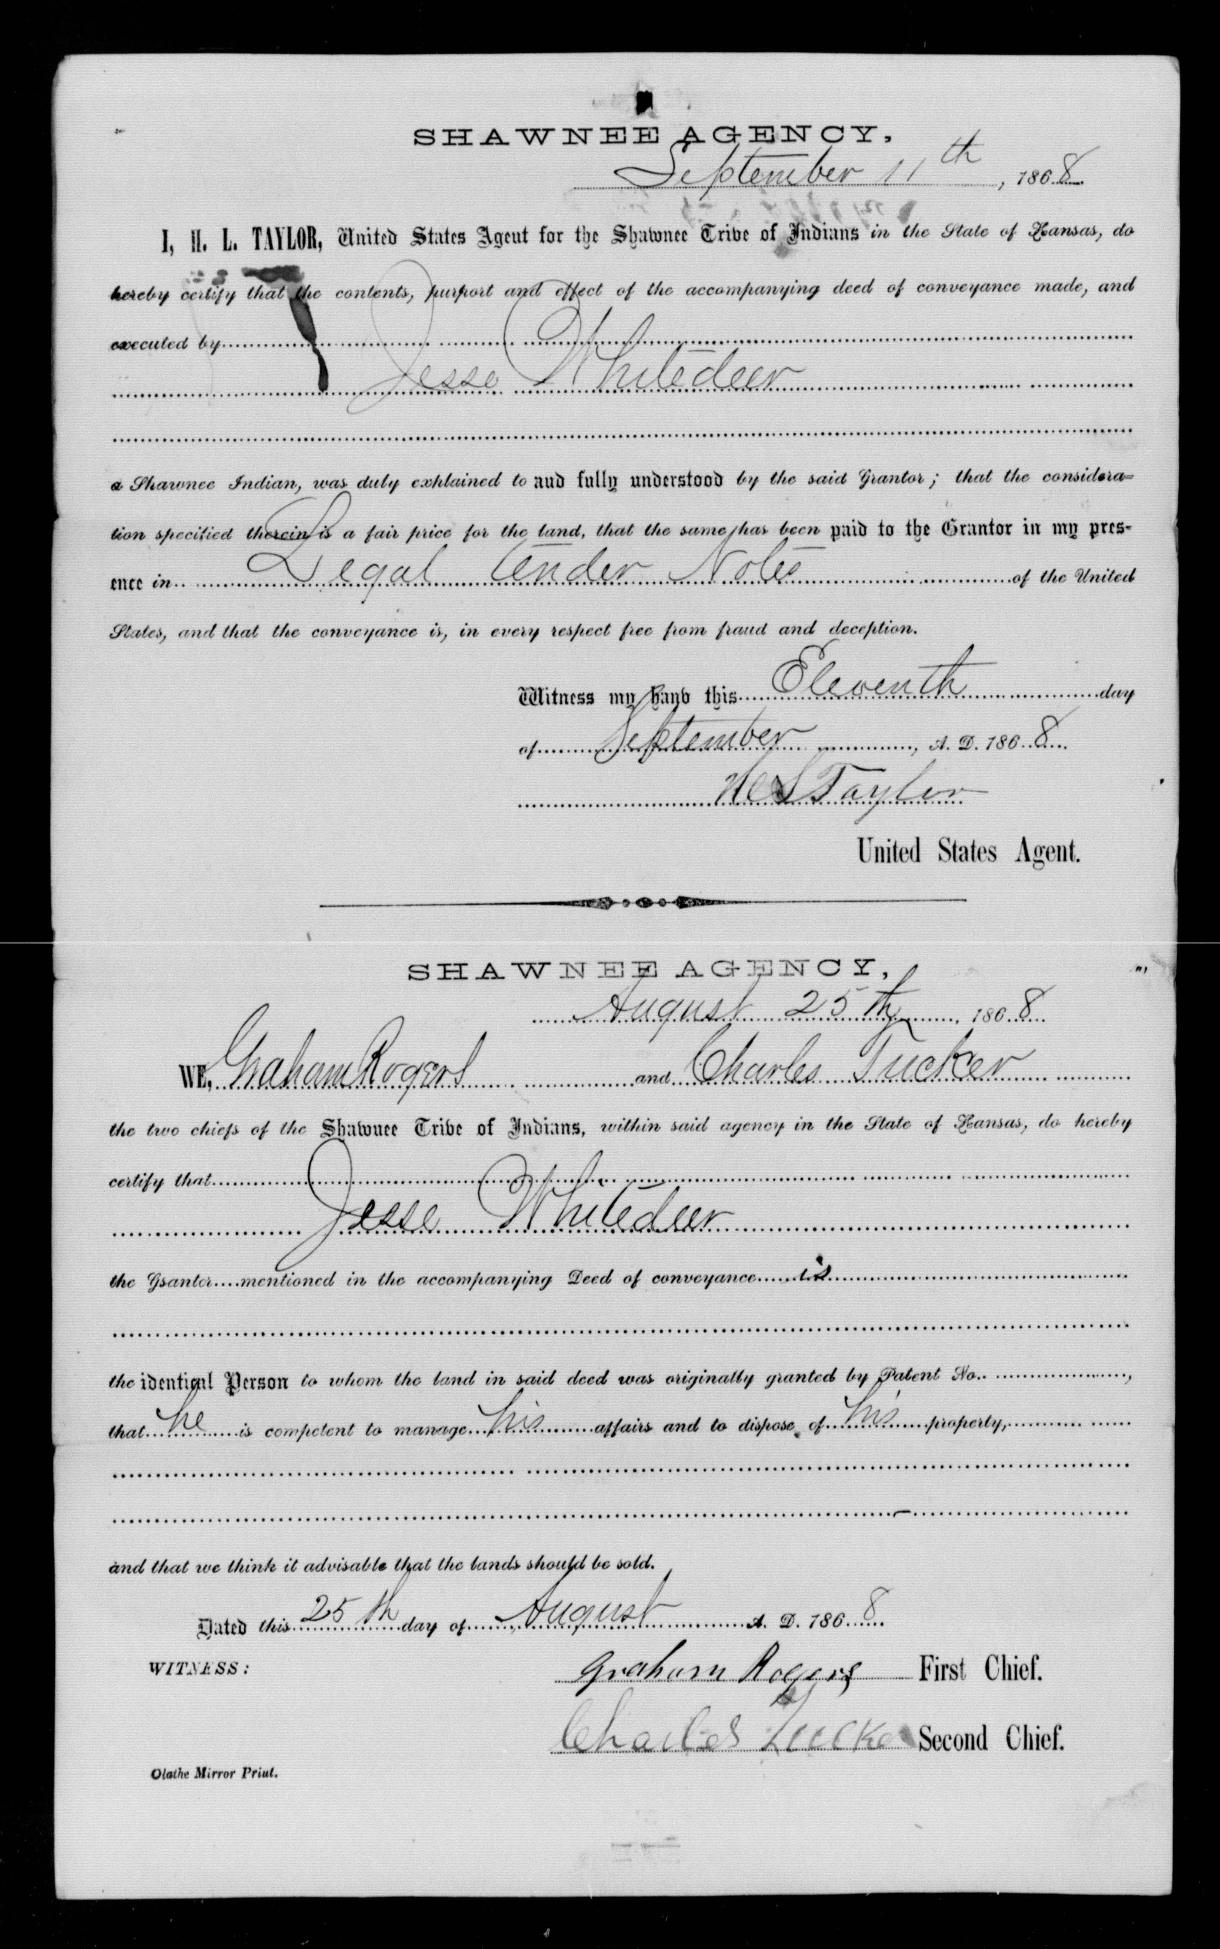 SHAWNEE AGENCY,
September 11th, 1868.
I, H. L. TAYLOR, United States Agent for the Shawnee Tribe of Indians in the State of Kansas, do
hereby certify that the contents, purport and effect of the accompanying deed of conveyance made, and
executed by
Jesse Whitedeer
a Shawnee Indian, was duly explained to and fully understood by the said Grantor; that the considera-
tion specified therein is a fair price for the land, that the same has been paid to the Grantor in my pres-
ence in Legal Tender Notes of the United
States, and that the conveyance is, in every respect free from fraud and deception.
Witness my hand this Eleventh day
of September, A. D. 1868
H L Taylor
United States Agent.
SHAWNEE AGENCY,
August 25th, 1868
WE, Graham Rogers and Charles Tucker
the two chiefs of the Shawnee Tribe of Indians, within said agency in the State of Kansas, do hereby
certify that
Jesse Whitedeer
the Grantor mentioned in the accompanying Deed of conveyance is
the identical Person to whom the land in said deed was originally granted by Patent No. ,
that he is competent to manage his affairs and to dispose of his property,
and that we think it advisable that the lands should be sold.
Dated this 25th day of August A. D. 1868
WITNESS: Graham Rogers First Chief.
Charles Tucker Second Chief.
Olathe Mirror Print.